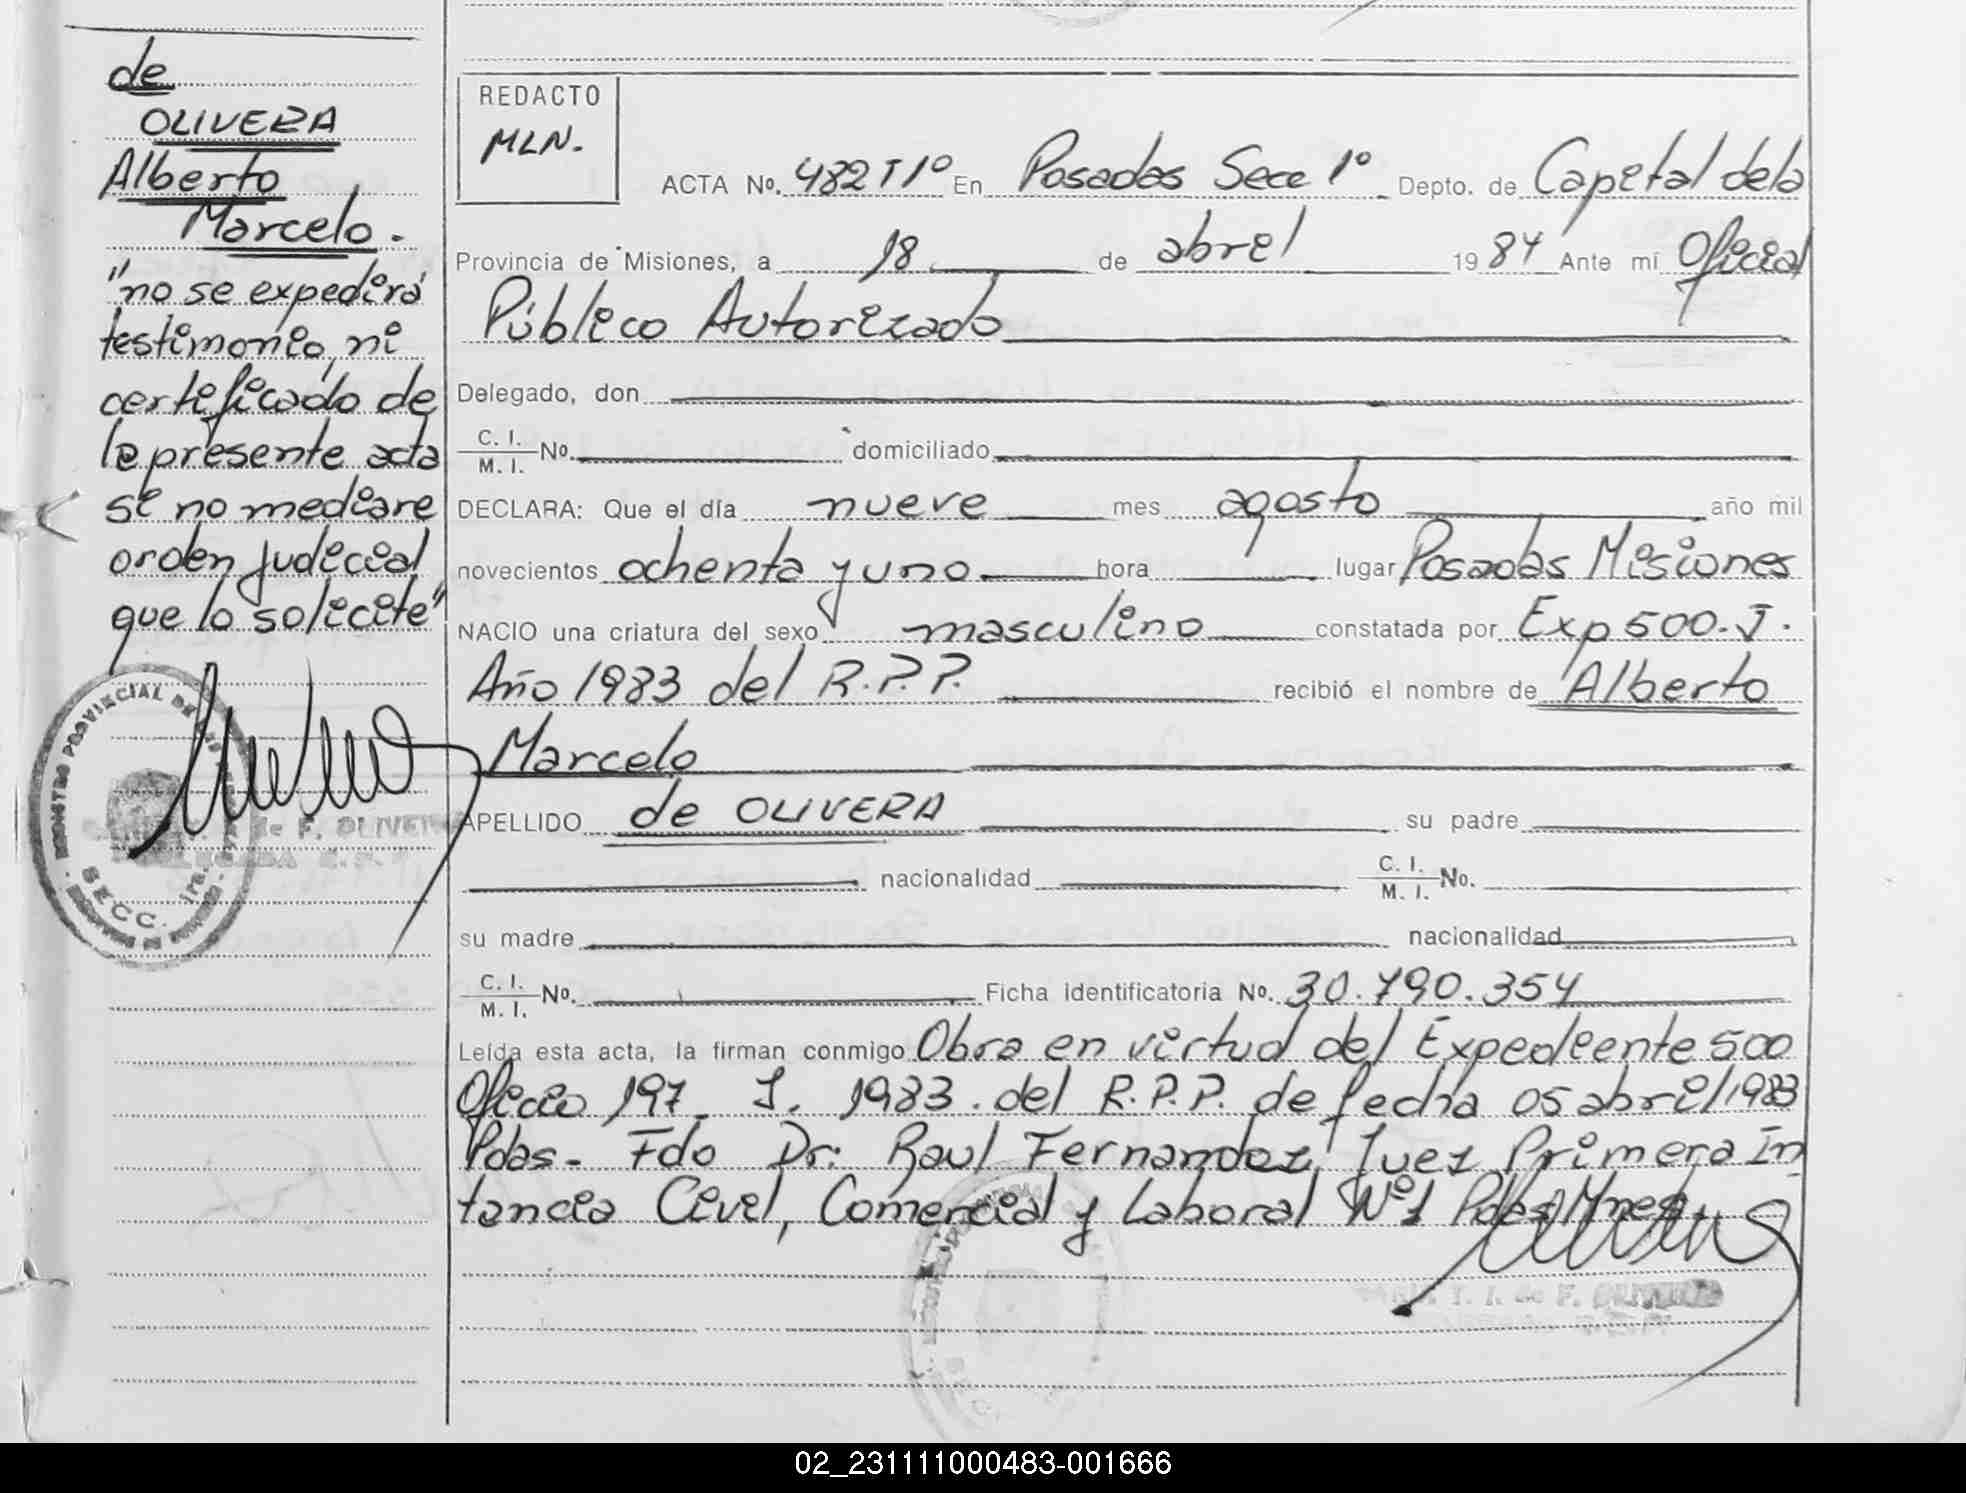 de
OLIVERA
Alberto
Marcelo.
"no se expedirá
testimonio, ni
certificado de
la presente acta
si no mediare
orden judicial
que lo solicite"
REGISTRO PROVINCIAL DE
SECC. 1ra.
de F. OLIVEIRA
REDACTO
MLN.
ACTA No. 482 T1º En Posadas Secc 1º Depto. de Capital de la
Provincia de Misiones, a 18 de abril 1984 Ante mí Oficial
Público Autorizado
Delegado, don
C. I. / M. I. No. domiciliado
DECLARA: Que el día nueve mes agosto año mil
novecientos ochenta y uno hora lugar Posadas Misiones
NACIO una criatura del sexo masculino constatada por Exp 500. J.
Año 1983 del R.P.P. recibió el nombre de Alberto
Marcelo
APELLIDO de OLIVERA su padre
nacionalidad C. I. / M. I. No.
su madre nacionalidad
C. I. / M. I. No. Ficha identificatoria No. 30.790.354
Leída esta acta, la firman conmigo Obra en virtud del Expediente 500
Oficio 197. J. 1983. del R.P.P. de fecha 05 abril/1983
Pdas. Fdo Dr: Raul Fernandez, Juez Primera In
tancia Civil, Comercial y Laboral Nº1 Pdas Mnes.
Y. I. de F.
02_231111000483-001666